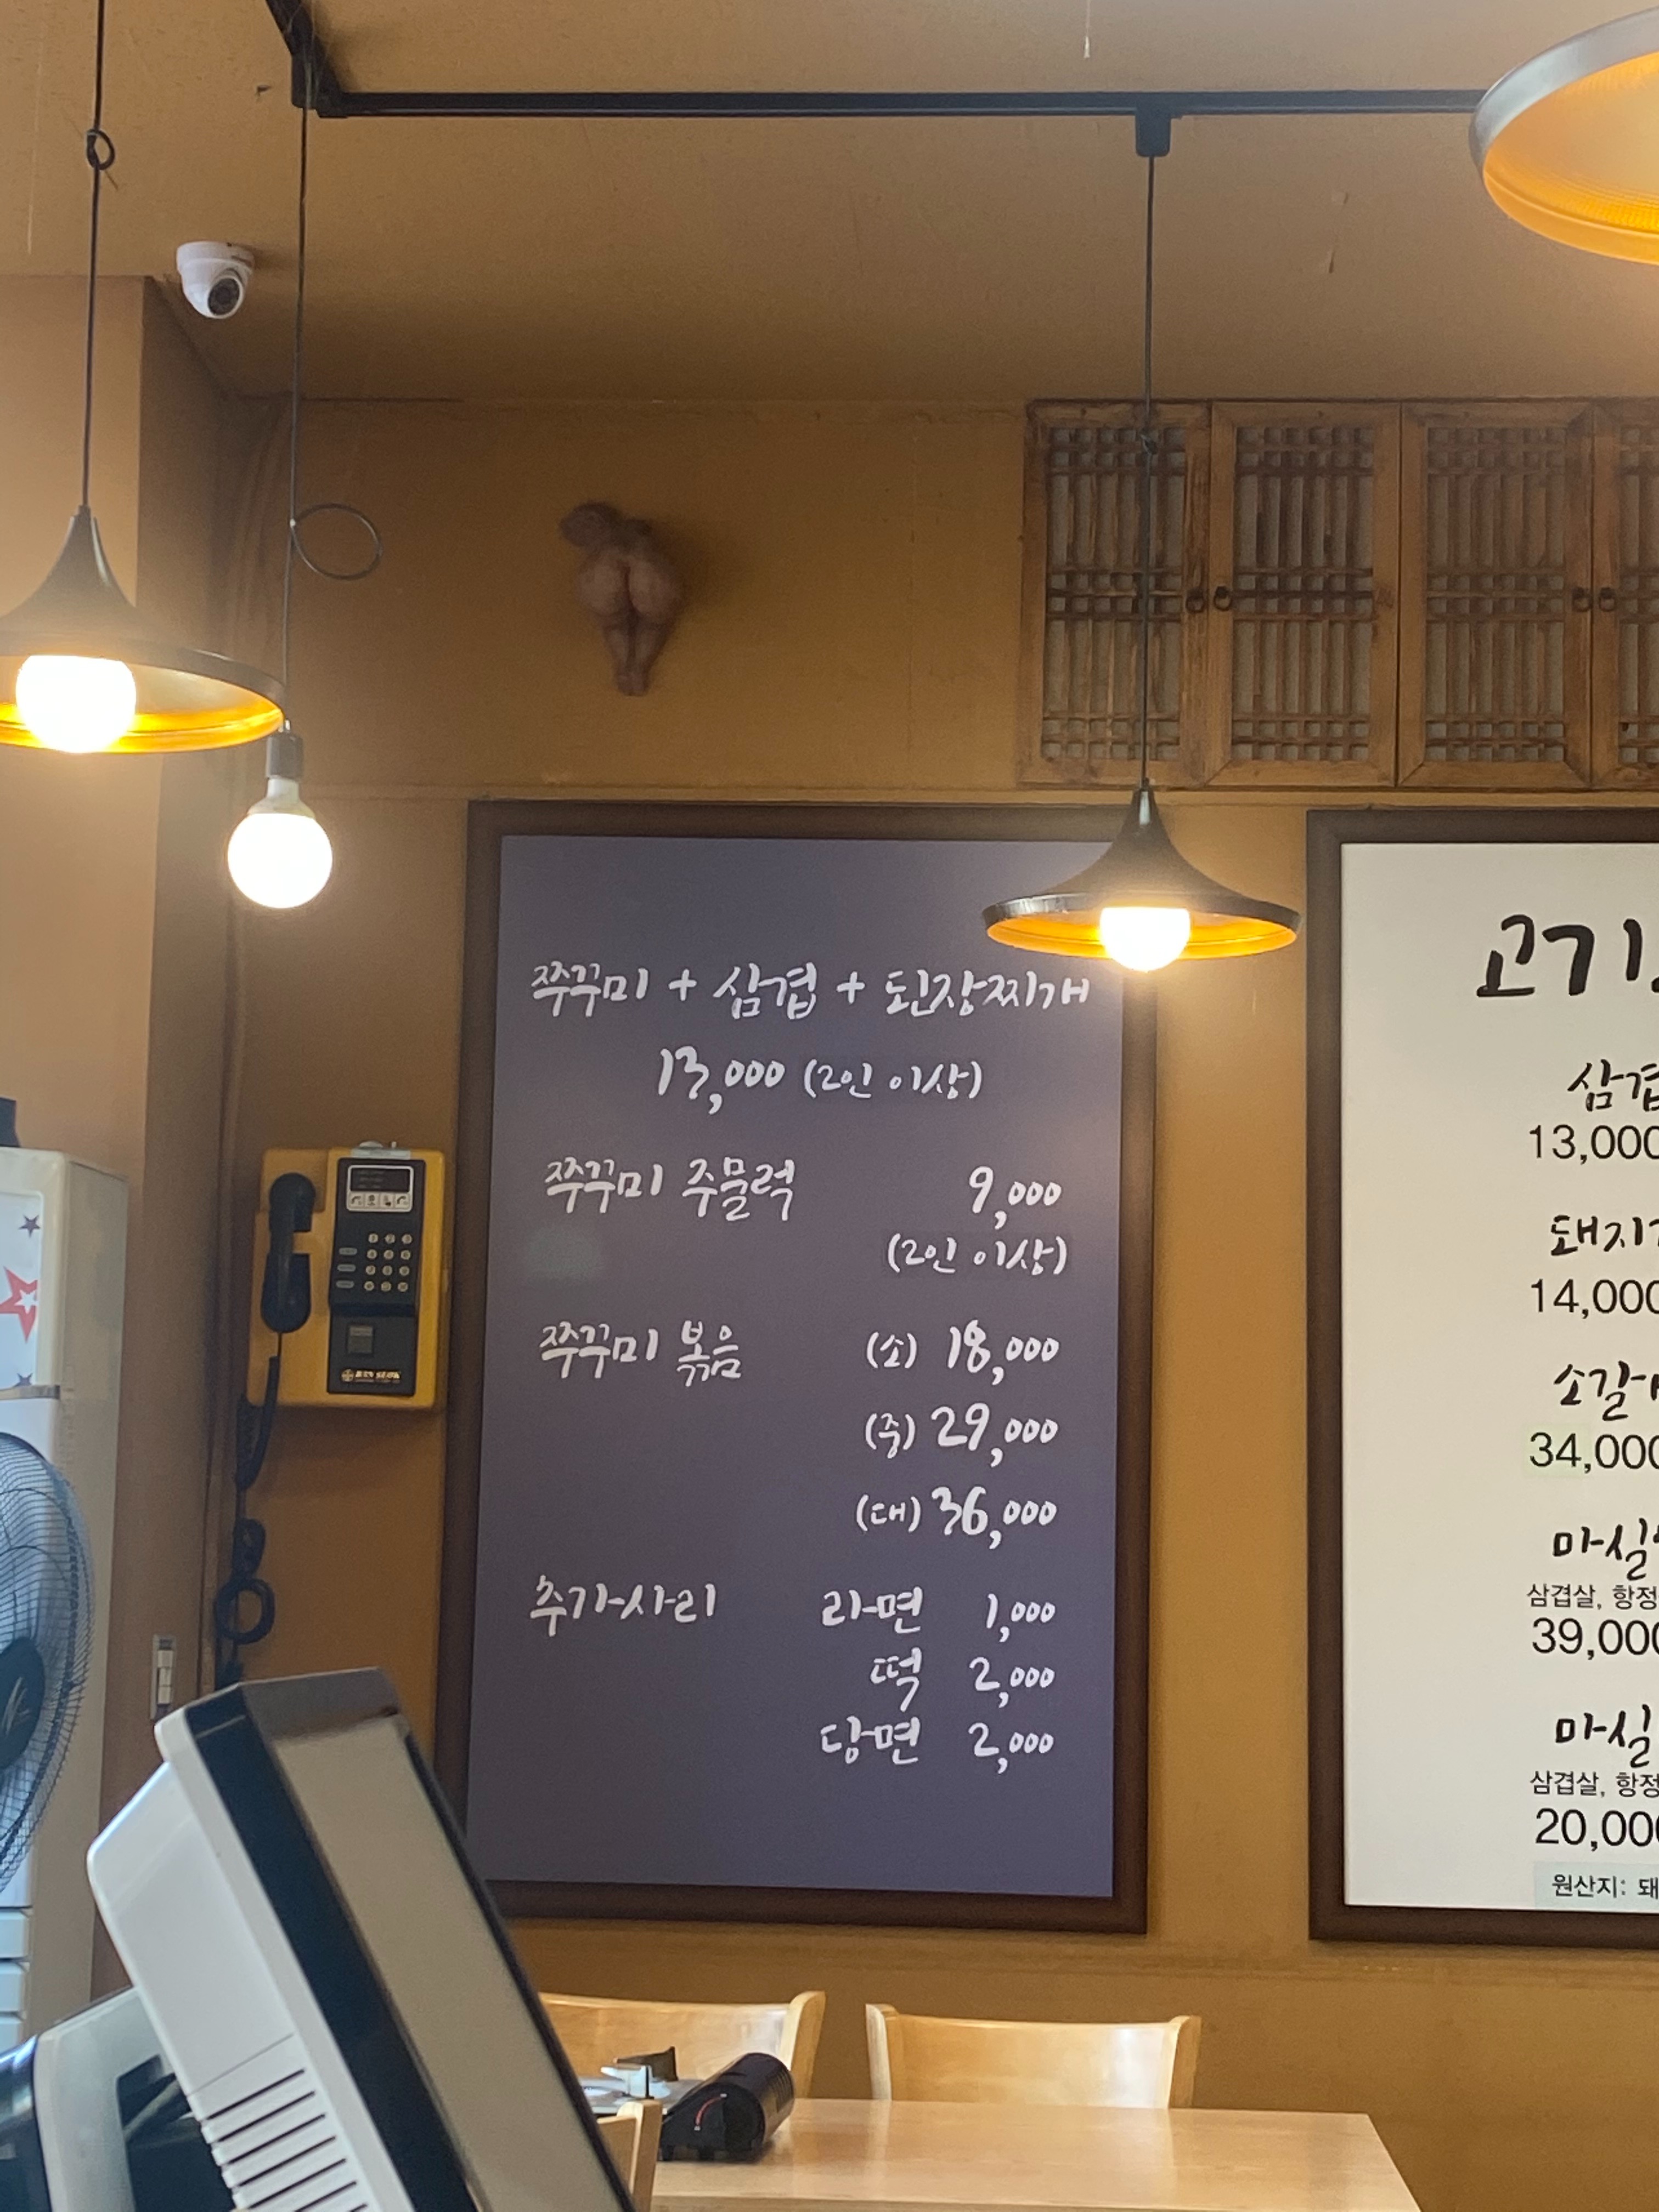 쭈꾸미 + 삼겹 + 된장찌개
13,000 (2인 이상)
쭈꾸미 주물럭 9,000
(2인 이상)
쭈꾸미 볶음 (소) 18,000
(중) 29,000
(대) 36,000
추가사리 라면 1,000
떡 2,000
당면 2,000
고기
삼겹
13,000
돼지
14,000
소갈
34,000
마실
삼겹살, 항정
39,000
마실
삼겹살, 항정
20,000
원산지: 돼